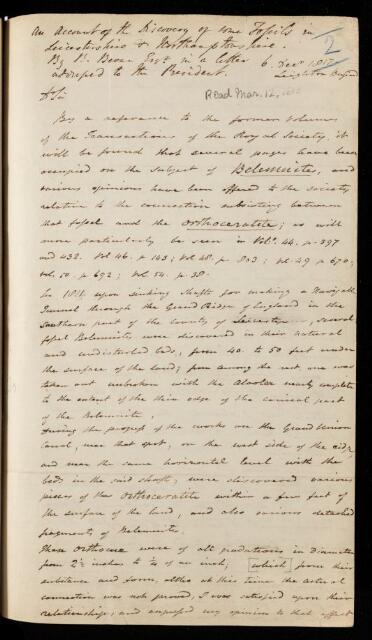 An Account of the Discovery of some Fossils in
Leicestershire & Northamptonshire.
By B. Bevan Esqr in a letter
adressed to the President.
2
6 Decr 1817
Leighton Buzzard
Read Mar. 12,
Dr Sir
By a reference to the former volumes
of the Transactions of the Royal Society, it
will be found that several pages have been
occupied on the subject of Belemnites, and
various opinions have been offered to the society
relative to the connection subsisting between
that fossil and the orthoceratite; as will
more particularly be seen in Vol. 44. p. 397
and 432. Vol 46. p 143; Vol 48. p 803; vol 49 p 670;
vol. 50. p 692; Vol 54. p. 38.
In 1811 upon sinking shafts for making a Navigable
Tunnel through the Grand Ridge of England in the
Southern part of the County of Leicester, several
fossil Belemnites were discovered in their natural
and undisturbed beds, from 40 to 50 feet under
the surface of the land; from among the rest, one was
taken out unbroken with the Alveolus nearly complete
to the extent of the thin edge of the conical part
of the Belemnite.
During the progress of the works on the Grand Union
Canal, near that spot, on the west side of the ridge,
and near the same horizontal level with the
beds in the said shafts, were discovered various
pieces of the Orthoceratite within a few feet of
the surface of the land, and also various detached
fragments of Belemnites.
These Orthoceræ were of all gradations in Diameter
from 2½ inches to of an inch; which from their
substance and form, altho at this time the actual
connection was not proved, I was satisfied upon their
relationship; and expressed my opinion to that effect